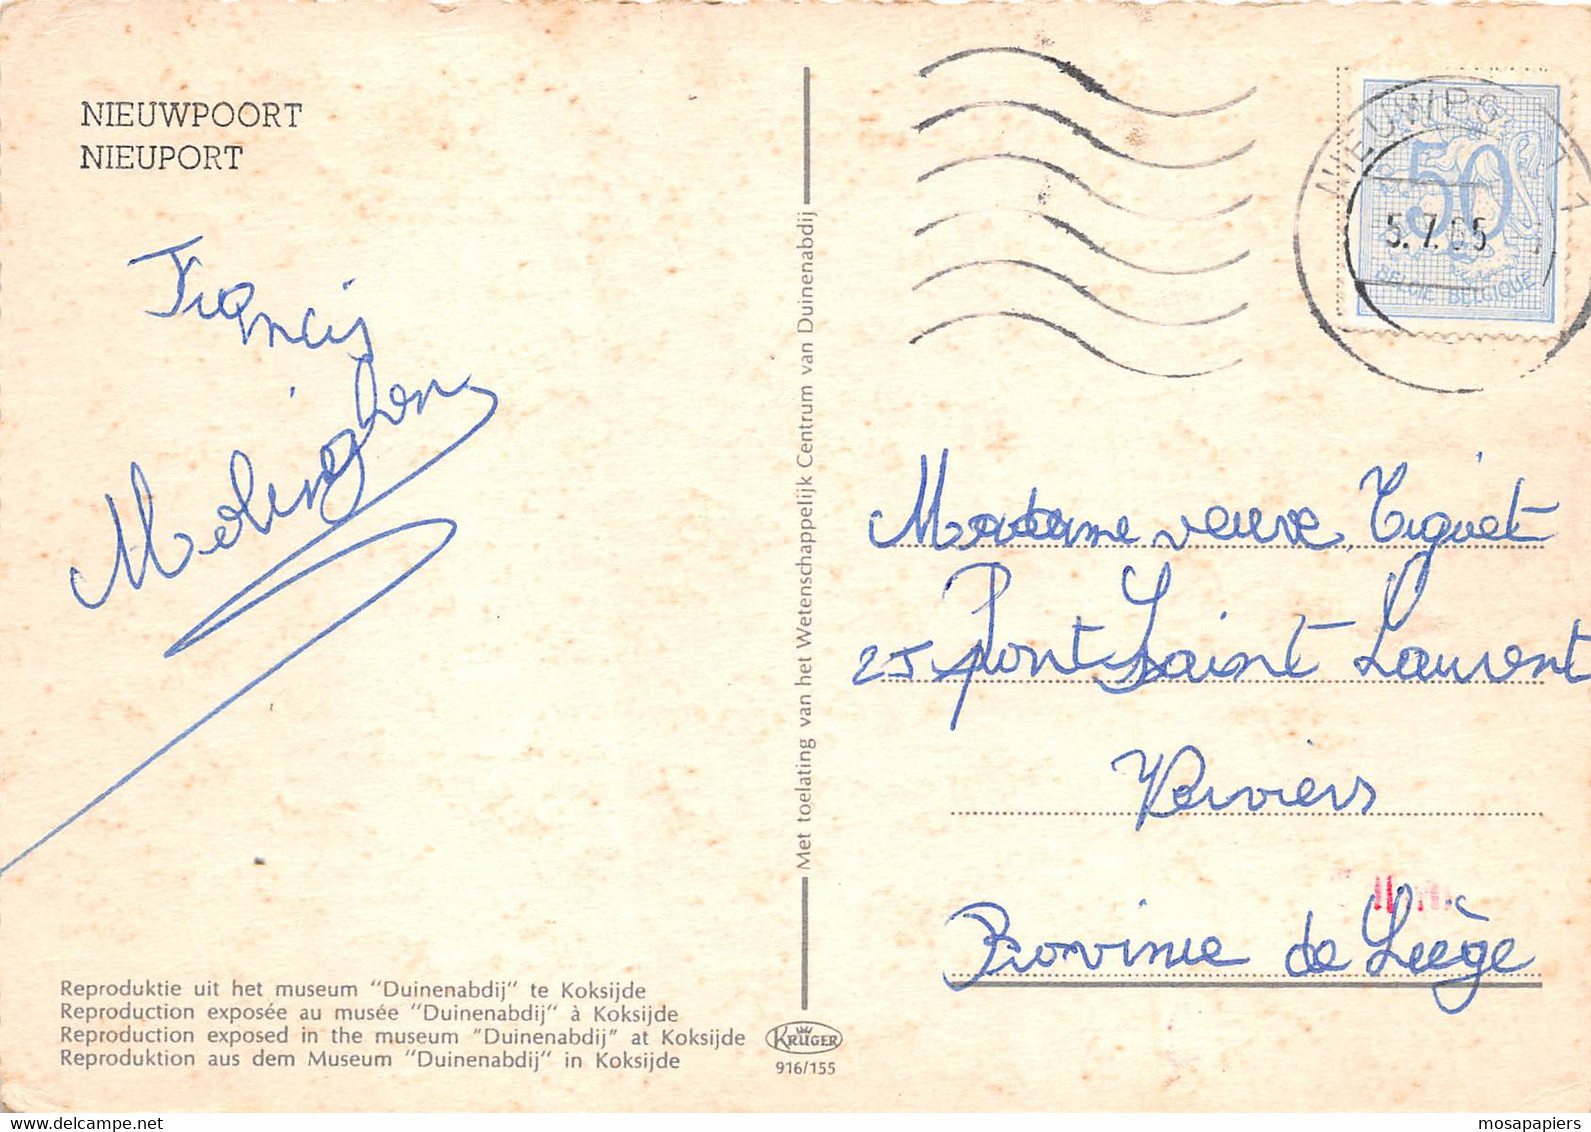 NIEUWPOORT
NIEUPORT
Francis
Molinghen
Reproduktie uit het museum "Duinenabdij" te Koksijde
Reproduction exposée au musée "Duinenabdij" à Koksijde
Reproduction exposed in the museum "Duinenabdij" at Koksijde
Reproduktion aus dem Museum "Duinenabdij" in Koksijde
Met toelating van het Wetenschappelijk Centrum van Duinenabdij
KRÜGER
916/155
50
BELGIE BELGIQUE
5.7.
Madame veuve Tiquet
25 Pont Saint Laurent
Verviers
Province de Liège
mosapapiers